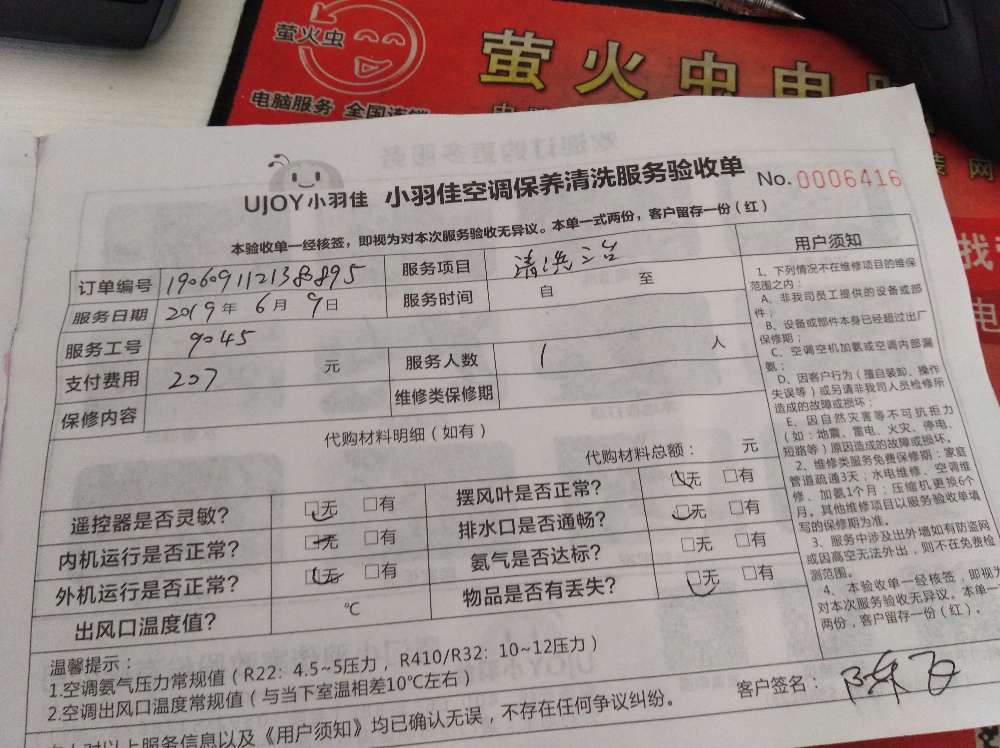 萤火虫
电脑服务 全国连锁
萤火虫电
UJOY小羽佳 小羽佳空调保养清洗服务验收单 No.0006416
本验收单一经核签，即视为对本次服务验收无异议。本单一式两份，客户留存一份（红）
订单编号 190609112138895 服务项目 清洗三台
服务日期 2019年6月9日 服务时间 自 至
服务工号 9045
支付费用 207 元 服务人数 1 人
保修内容 维修类保修期
代购材料明细（如有）
代购材料总额： 元
遥控器是否灵敏？ □无 □有 摆风叶是否正常？ □无 □有
内机运行是否正常？ □无 □有 排水口是否通畅？ □无 □有
外机运行是否正常？ □无 □有 氨气是否达标？ □无 □有
出风口温度值？ ℃ 物品是否有丢失？ □无 □有
温馨提示：
1.空调氨气压力常规值（R22：4.5~5压力，R410/R32：10~12压力）
2.空调出风口温度常规值（与当下室温相差10℃左右）
对以上服务信息以及《用户须知》均已确认无误，不存在任何争议纠纷。
客户签名：
用户须知
1、下列情况不在维修项目的维保
范围之内：
A、非我司员工提供的设备或部
件；
B、设备或部件本身已经超过出厂
保修期；
C、空调空机加氨或空调内部漏
氨；
D、因客户行为（擅自装卸、操作
失误等）或另请非我司人员检修所
造成的故障或损坏；
E、因自然灾害等不可抗拒力
（如：地震、雷电、火灾、停电、
短路等）原因造成的故障或损坏。
2、维修类服务免费保修期：家庭
管道疏通3天；水电维修、空调维
修、加氨1个月；压缩机更换6个
月。其他维修项目以服务验收单填
写的保修期为准。
3、服务中涉及出外墙如有防盗网
或因高空无法外出，则不在免费检
测范围。
4、本验收单一经核签，即视为
对本次服务验收无异议。本单一
两份，客户留存一份（红）。